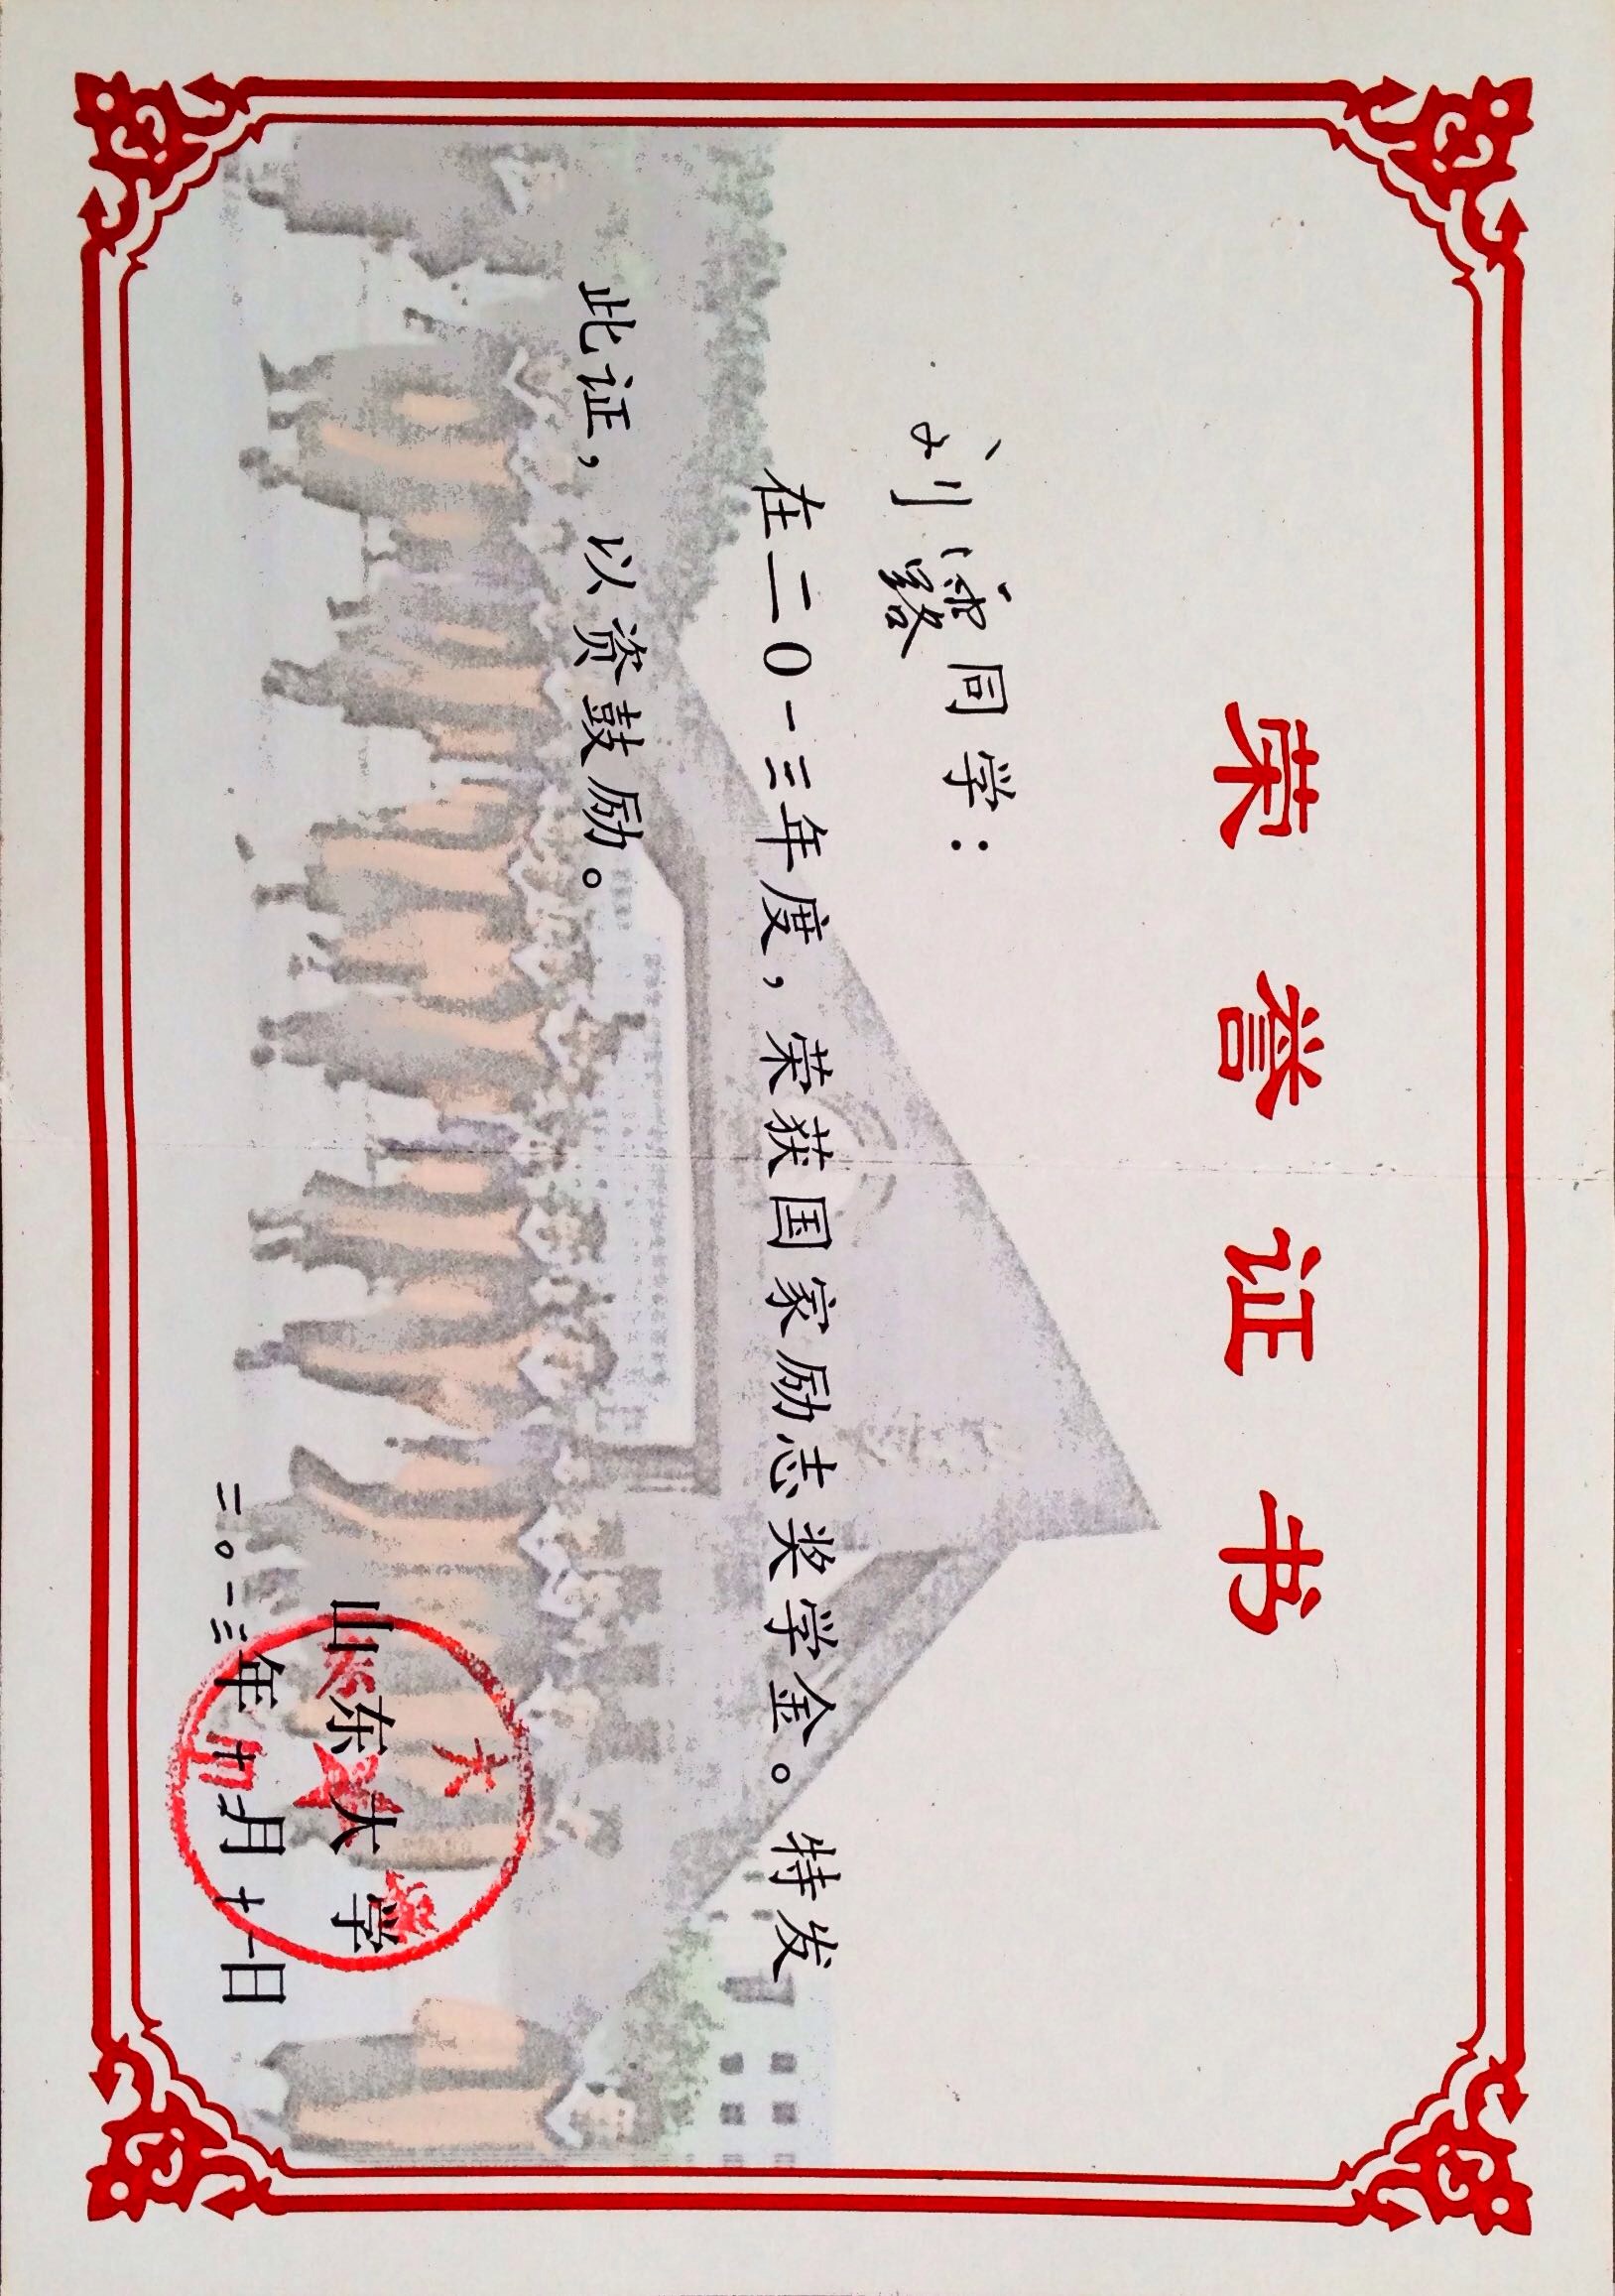 荣誉证书
刘露同学：
在二〇一三年度，荣获国家励志奖学金。特发
此证，以资鼓励。
山东大学
二〇一三年 月十一日